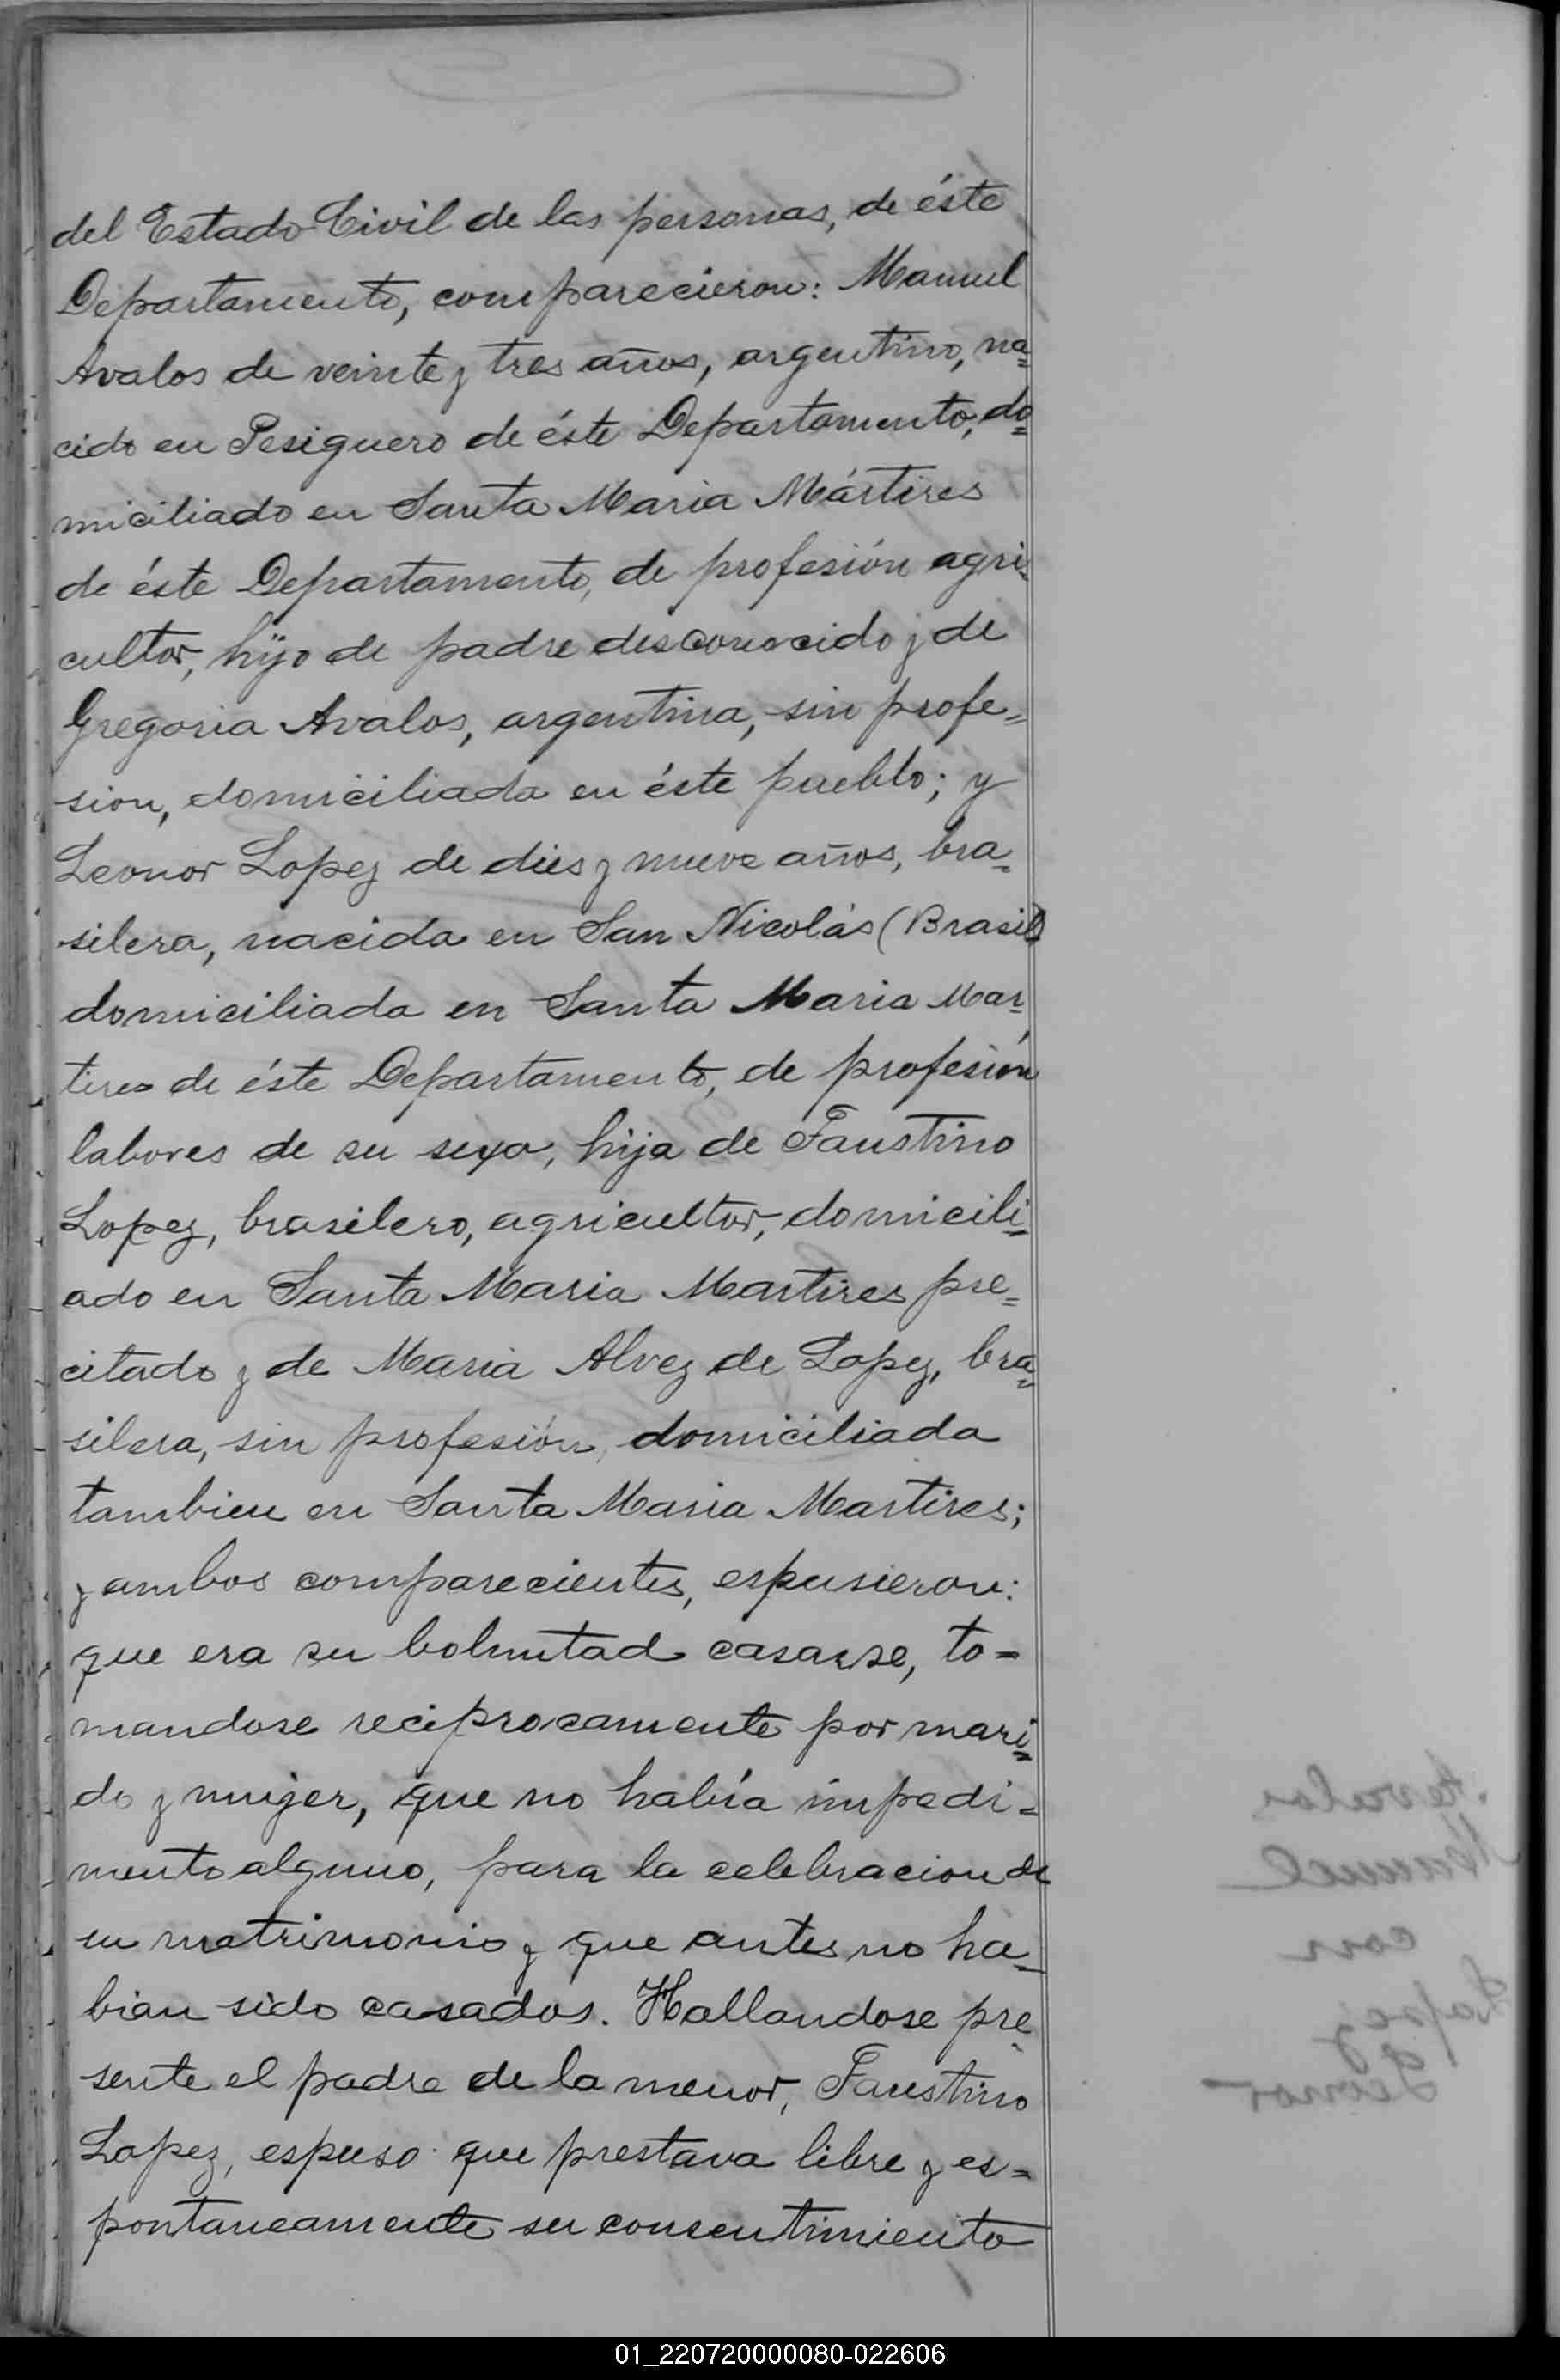 del Estado Civil de las personas, de éste
Departamento, comparecieron: Manuel
Avalos de veinte y tres años, argentino, na=
cido en Pesiguero de éste Departamento, do=
miciliado en Santa Maria Mártires
de éste Departamento, de profesión agri=
cultor, hijo de padre desconocido y de
Gregoria Avalos, argentina, sin profe=
sion, domiciliada en éste pueblo; y
Leonor Lopez de dies y nueve años, bra=
silera, nacida en San Nicolás (Brasil)
domiciliada en Santa Maria Mar=
tires de éste Departamento, de profesión
labores de su sexo, hija de Faustino
Lopez, brasilero, agricultor, domicili=
ado en Santa Maria Martires pre=
citado y de Maria Alvez de Lopez, bra=
silera, sin profesión, domiciliada
tambien en Santa Maria Martires;
y ambos comparecientes, espusieron:
que era su boluntad casarse, to=
mandose reciprocamente por mari=
do y mujer, que no había impedi=
mento alguno, para la celebracion de
su matrimonio y que antes no ha=
bian sido casados. Hallandose pre=
sente el padre de la menor, Faustino
Lopez, espuso que prestava libre y es=
pontaneamente su consentimiento
Avalos
Manuel
con
Lopez
Leonor
01_220720000080-022606